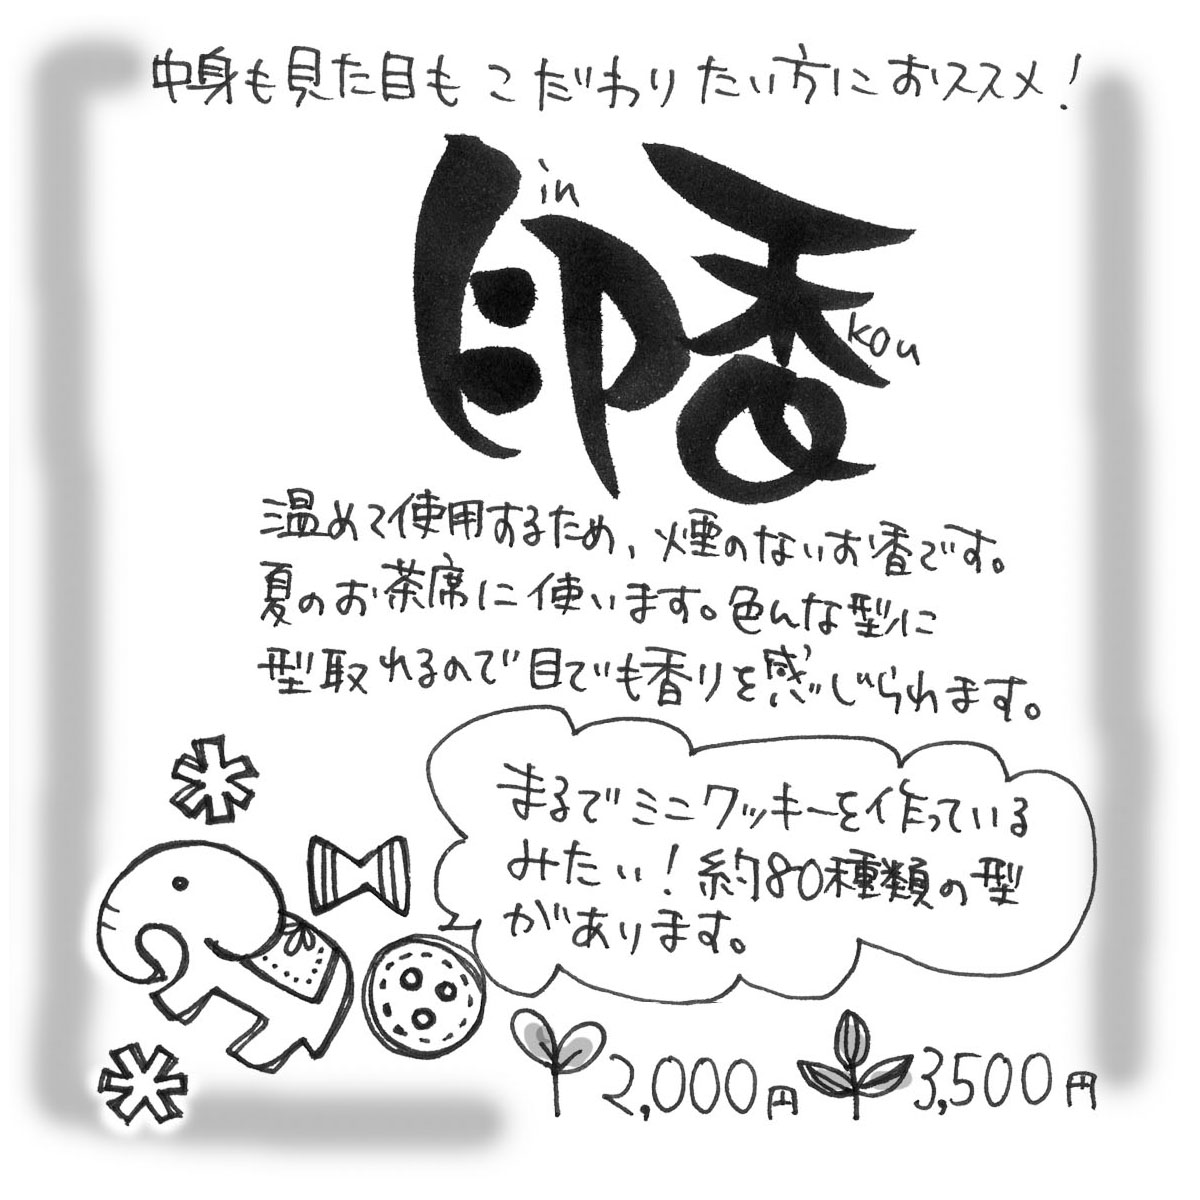 中身も見た目もこだわりたい方におススメ!
印香
in
kou
温めて使用するため、煙のないお香です。
夏のお茶席に使います。色んな型に
型取れるので目でも香りを感じられます。
まるでミニクッキーを作っている
みたい!約80種類の型
があります。
2,000円
3,500円